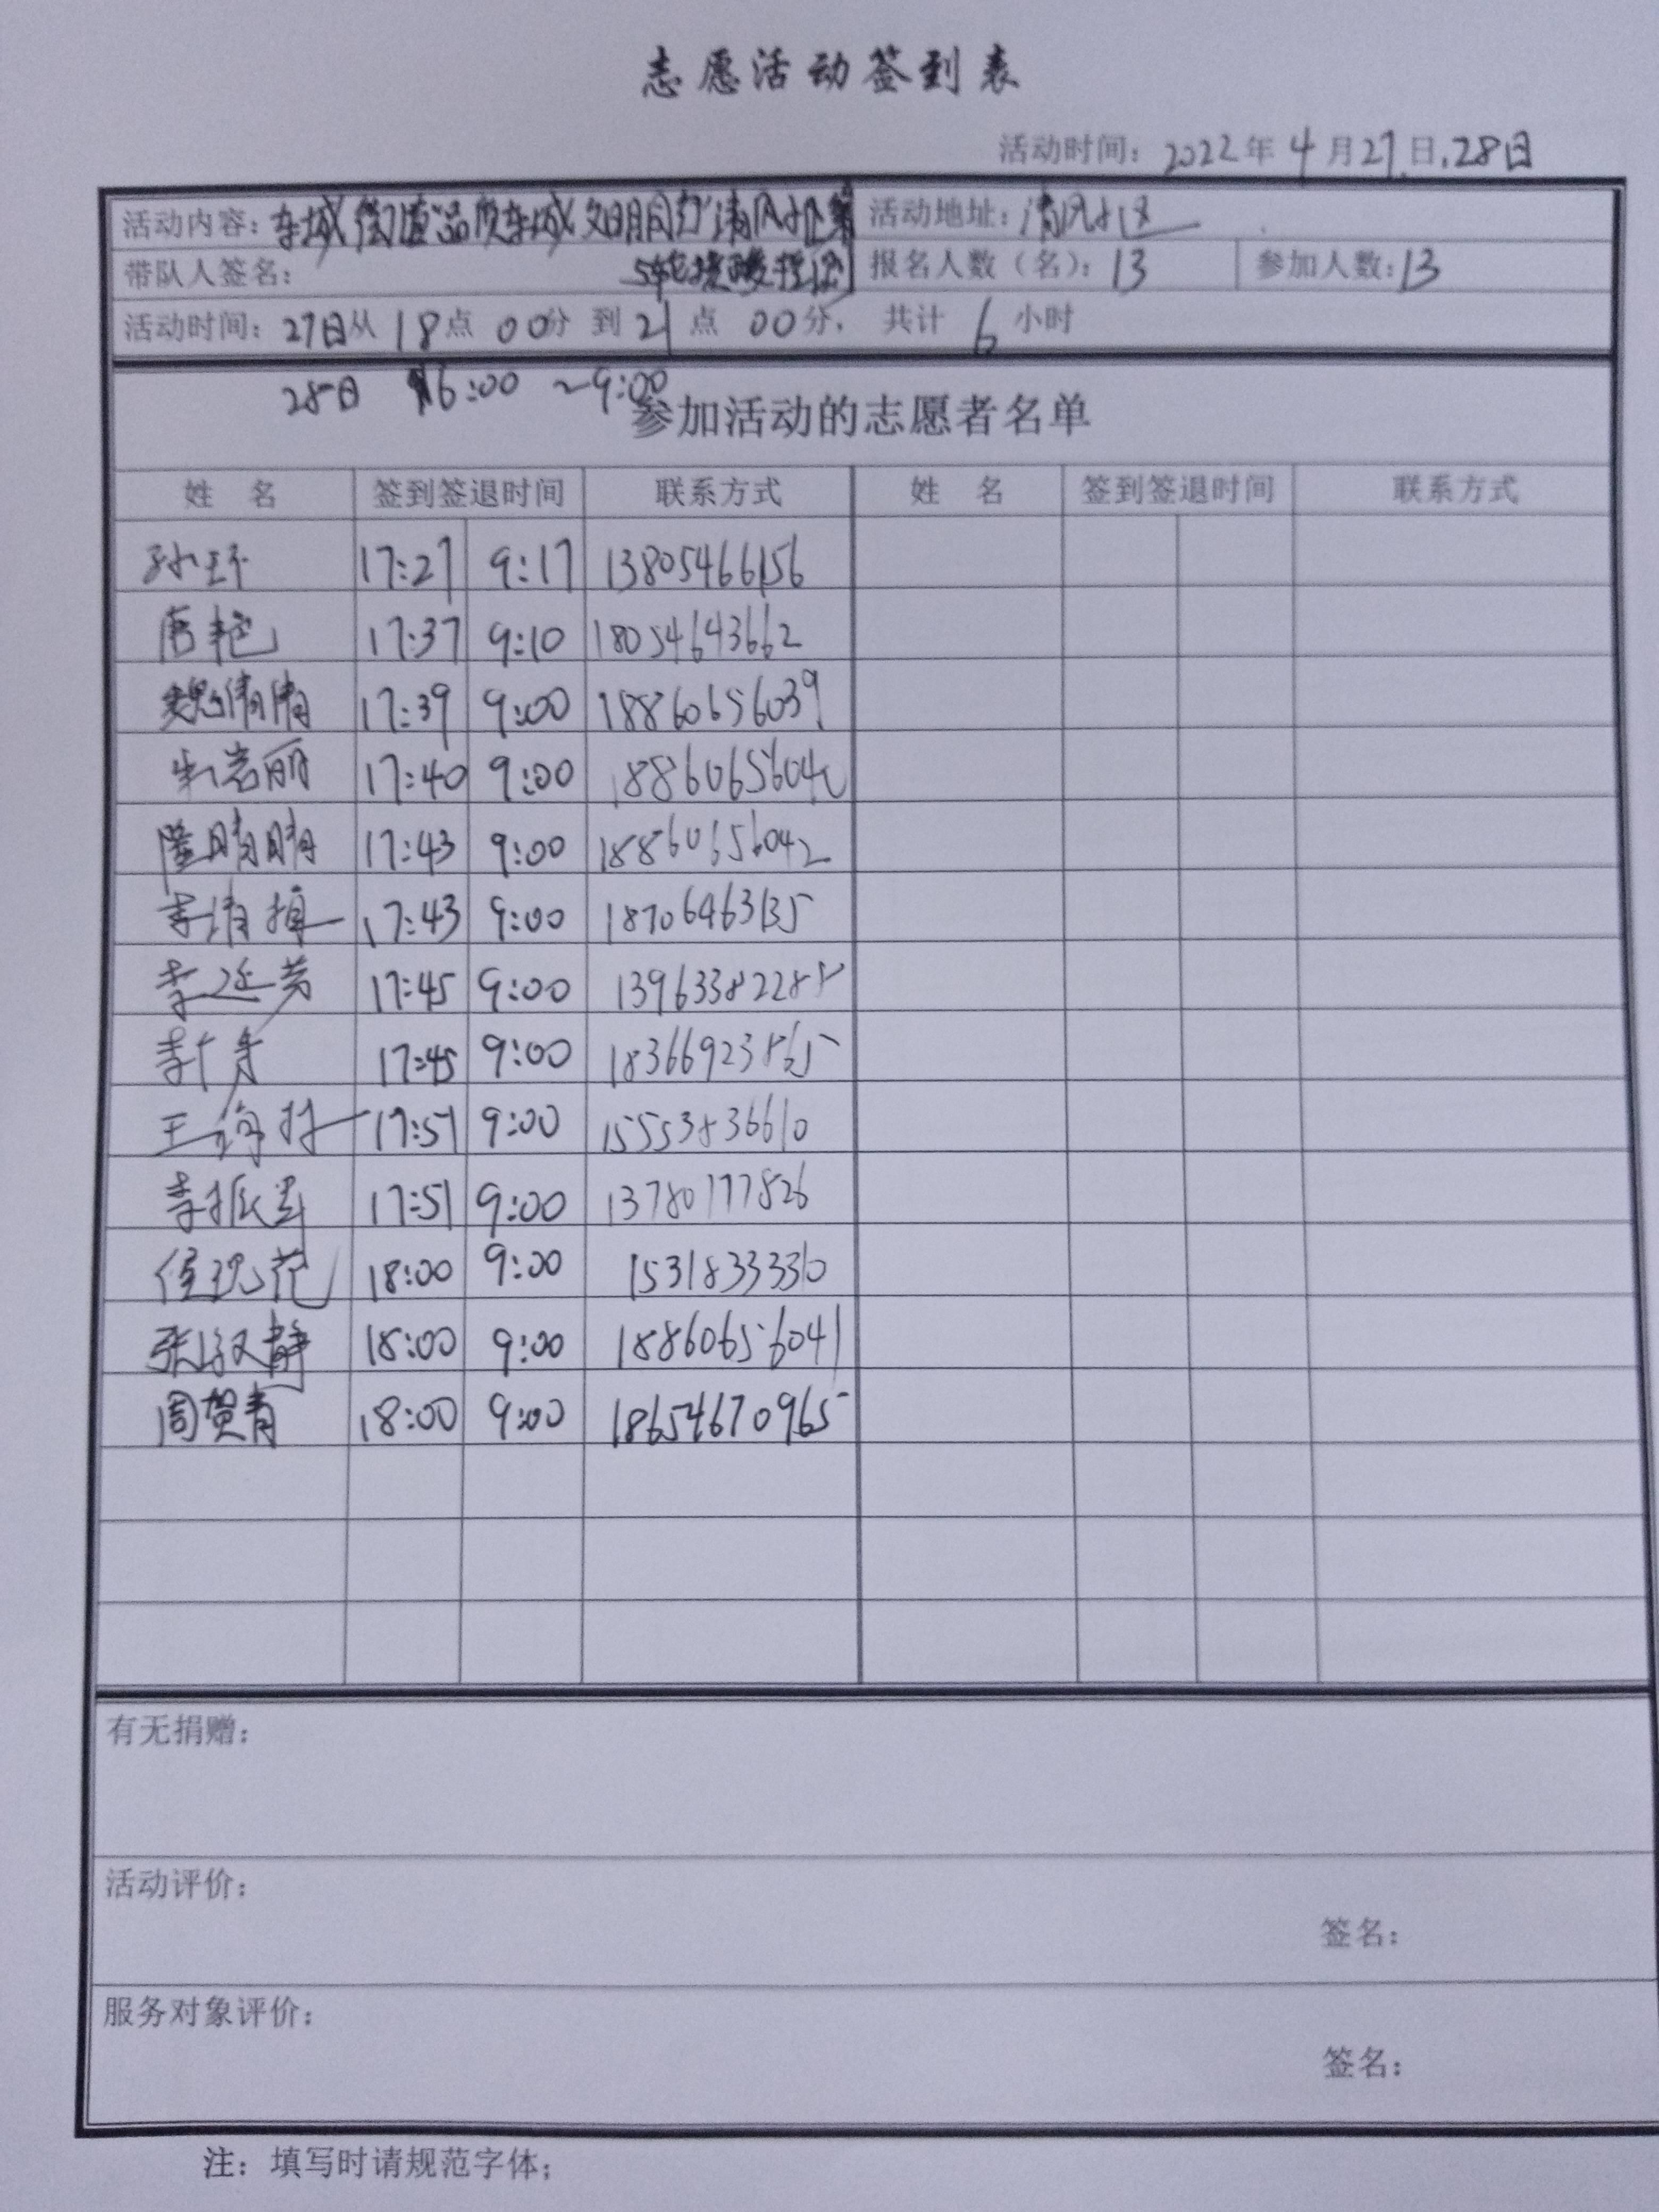 志愿活动签到表
活动时间：2022年4月27日.28日
活动内容：东城街道"品质东城 文明同行"清风小区第 活动地址：清风小区
带队人签名： 5轮核酸 报名人数（名）：13 参加人数：13
活动时间：27日从18点00分到21点00分，共计6小时
28日 6:00 ~9:00
参加活动的志愿者名单
姓 名 签到签退时间 联系方式 姓 名 签到签退时间 联系方式
孙 17:27 9:17 13805466156
唐艳 17:37 9:10 18054643662
魏倩倩 17:39 9:00 18860656039
岩丽 17:40 9:00
隆晴晴 17:43 9:00 18860656042
李清 17:43 9:00 18706463135
李延芳 17:45 9:00
李 17:45 9:00
王海 17:51 9:00 15553836610
李振 17:51 9:00 13780777826
侯现花 18:00 9:00 1531833330
张汉静 18:00 9:00 18860656041
周贺青 18:00 9:00 18654670965
有无捐赠：
活动评价：
签名：
服务对象评价：
签名：
注：填写时请规范字体；